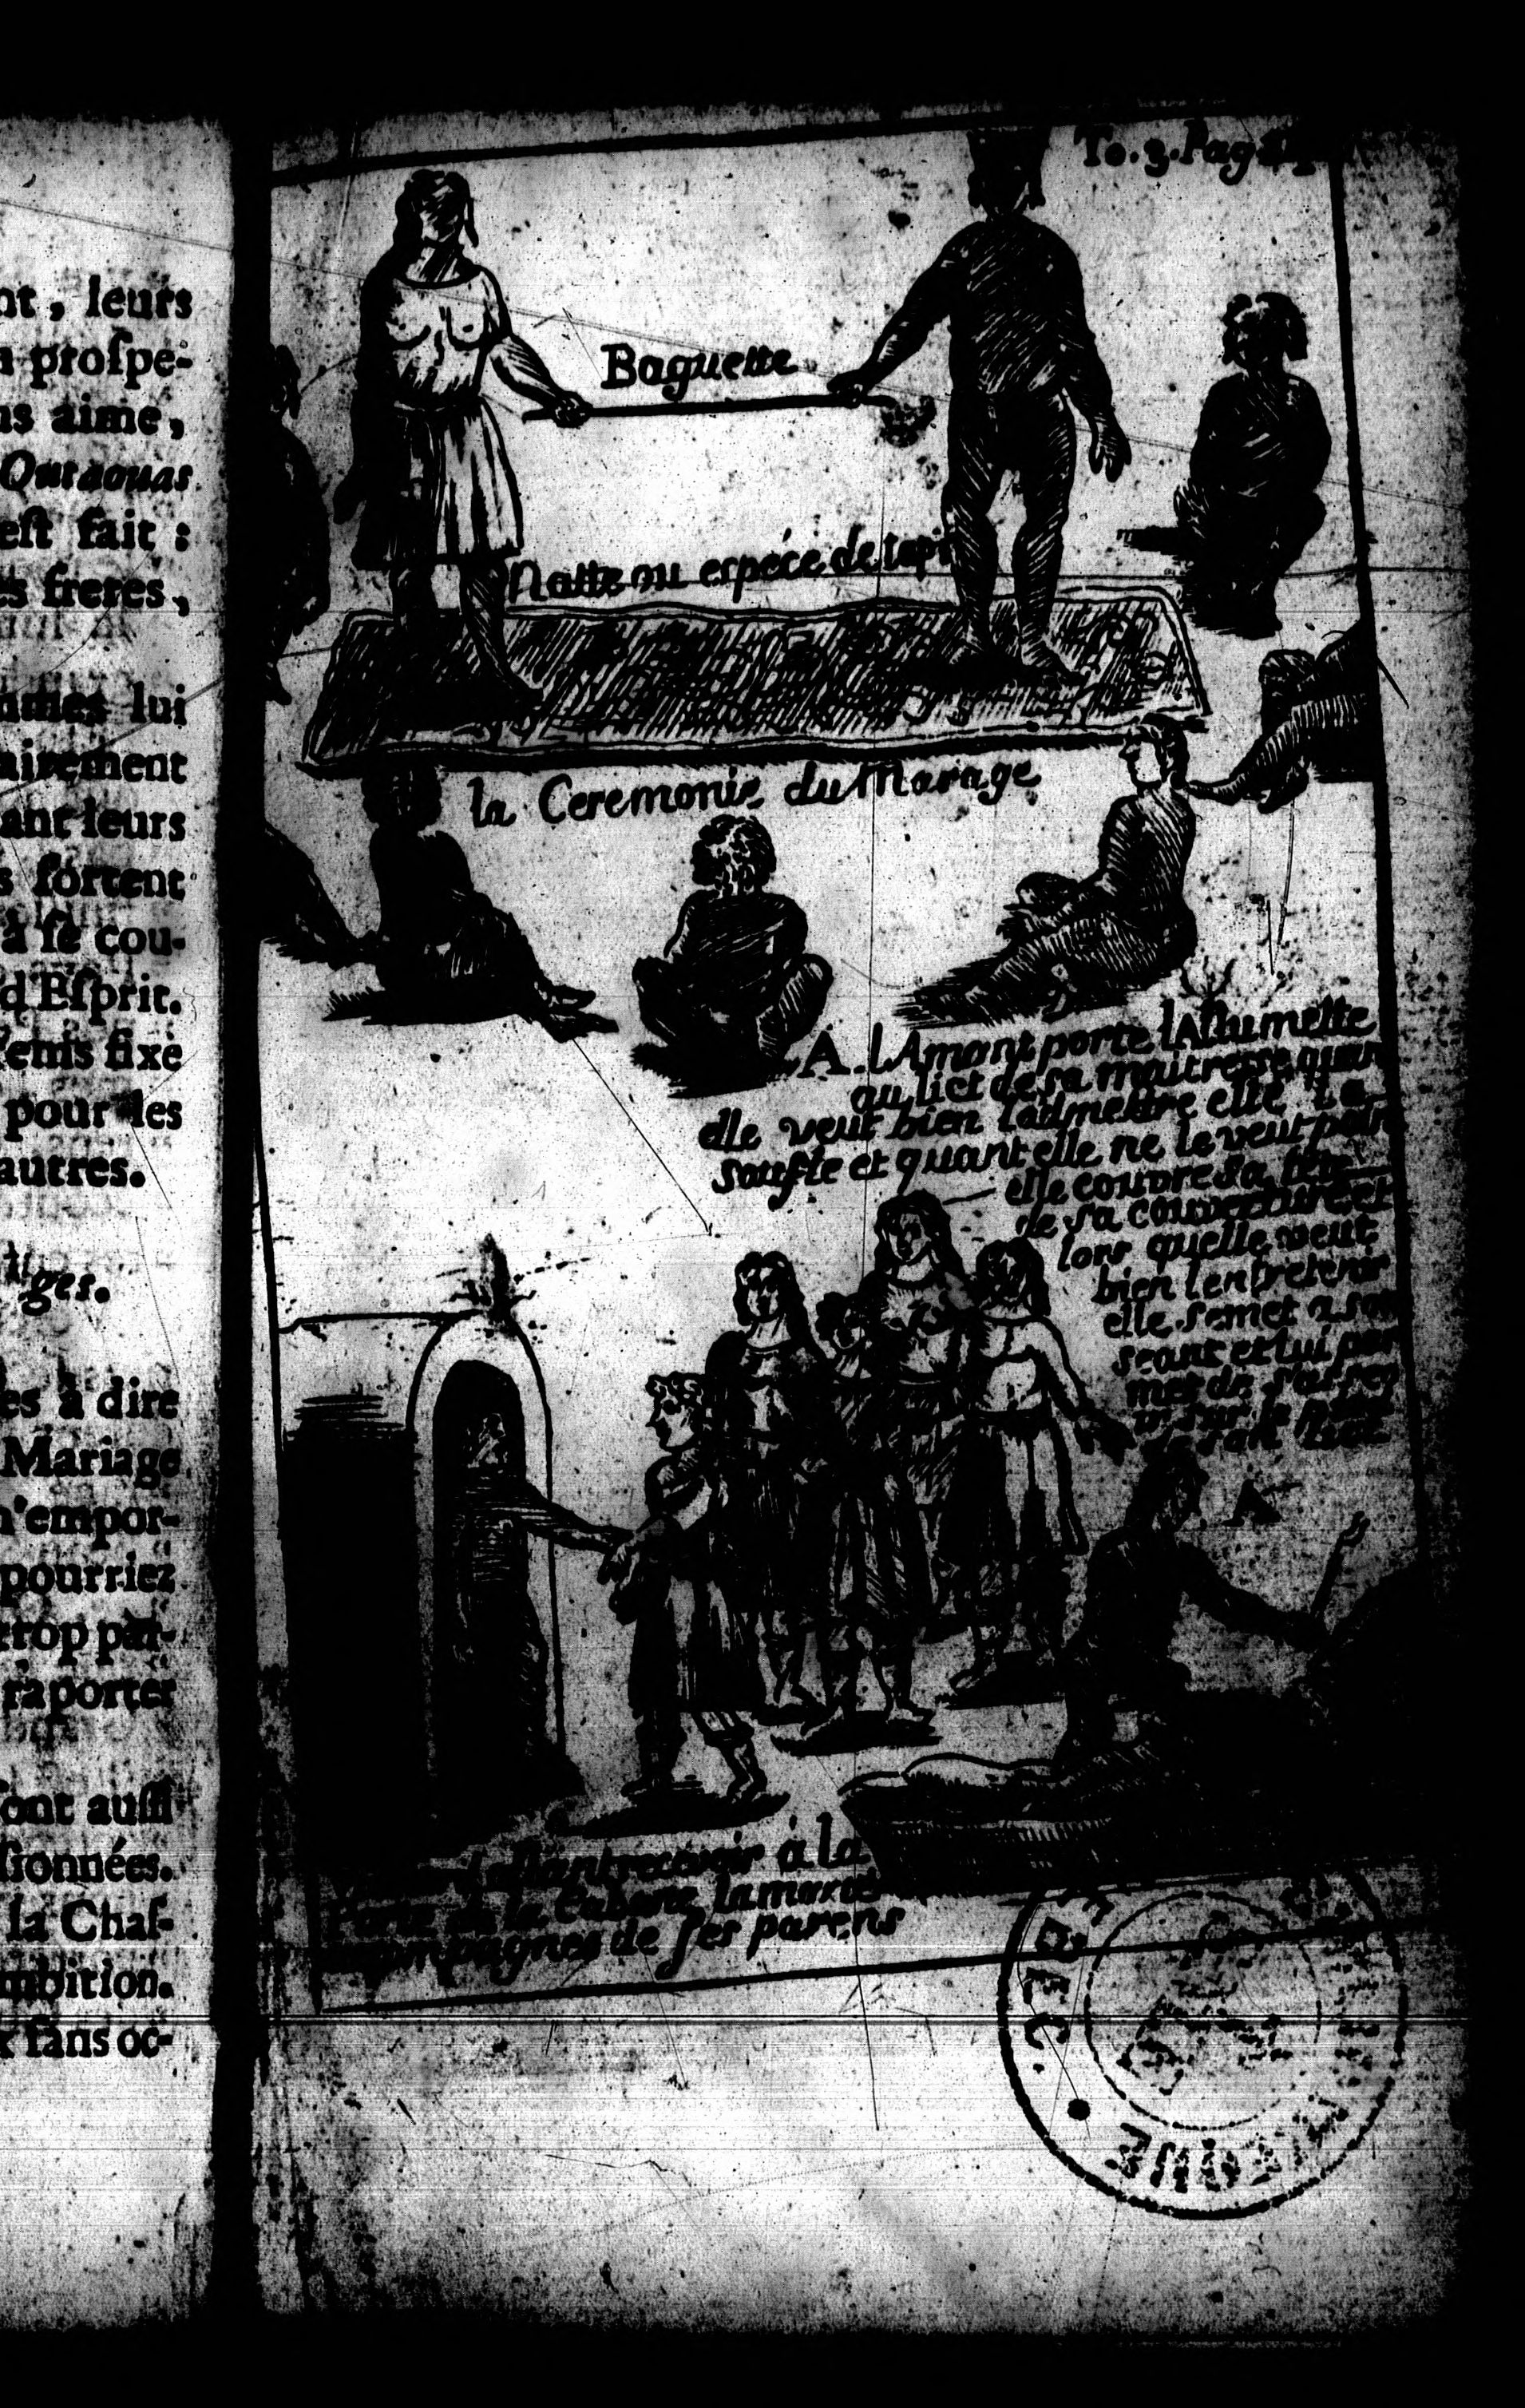 nt, leurs
profpe-
ns aime,
Outaouas
eft fait :
es freres,
mmes lui
airement
ant leurs
s fortent
à fe cou-
d Efprit.
fens fixe
pour les
autres.
ges.
es à dire
Mariage
n'empor-
pourriez
trop par-
raporter
font auffi
fionnées.
la Chaf-
mbition.
x fans oc-
To. 3. Pag
Baguette
Natte ou espéce de tapi
la Ceremonie du Marage
A. lAmant porte lAllumette
au lict de sa maitresse quan
elle veut bien ladmettre elle la
soufle et quant elle ne le veut poin
elle couvre sa tête
de sa couverture et
lors quelle veut
bien lentretenir
elle se met a son
seant et lui per
met de
sur le
de son lict
A
allant recevoir à la
Porte de la Cabane la mariée
acompagnée de ses parens
BEC.